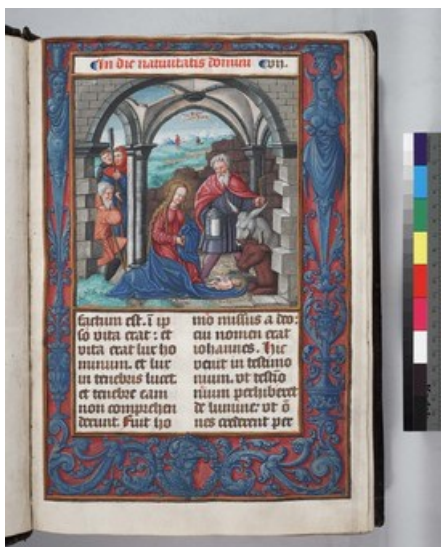 In die natiuitatis domini vij.
factum est. ī ip
so vita erat: et
vita erat lux ho
minum. et lux
in tenebris lucet
et tenebre eam
non comprehen
derunt. Fuit ho
mo missus a deo:
cui nomen erat
iohannes. Hic
venit in testimo
nium. vt testio
nium perhiberet
de lumine: vt ō
nes crederent per